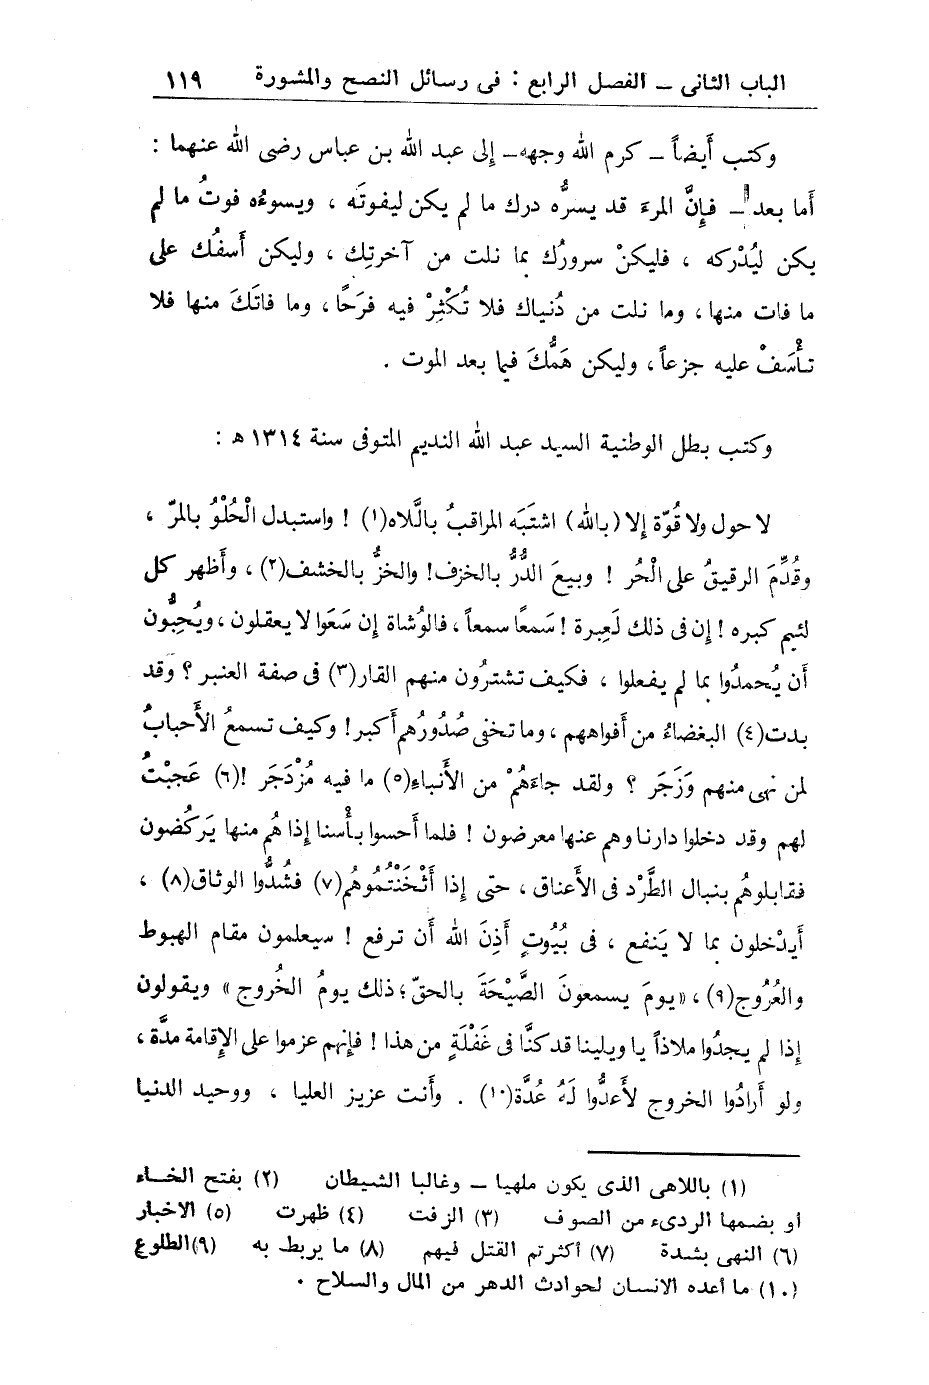 الباب الثانى ــ الفصل الرابع : فى رسائل النصح والمشورة ١١٩
وكتب أَيضاً ــ كرم الله وجهه ــ إلى عبد الله بن عباس رضى الله عنهما :
أَما بعد ــ فإِنَّ المرءَ قد يسرُّه درك ما لم يكن ليفوتَه ، ويسوءُه فوتُ ما لم
يكن ليُدْركه ، فليكنْ سرورُك بما نلت من آخرتِك ، وليكن أَسفُك على
ما فات منها ، وما نلت من دُنياك فلا تُكْثِرْ فيه فرَحًا ، وما فاتَكَ منها فلا
تأْسَفْ عليه جزعاً ، وليكن هَمُّكَ فيما بعد الموت .
وكتب بطل الوطنية السيد عبد الله النديم المتوفى سنة ١٣١٤ هـ :
لا حول ولا قُوّة إلا (بالله) اشتَبَه المراقبُ باللَّاه(١) ! واستبدل الْحُلْوُ بالمرّ ،
وقُدِّمَ الرقيقُ على الْحُر ! وبيعَ الدُّرُّ بالخزف! والخزُّ بالخشف(٢) ، وأَظهر كل
لئيم كبره ! إن فى ذلك لَعِبرة ! سَمعًا سمعاً ، فالوُشاة إن سَعَوا لا يعقلون ، ويُحِبُّون
أَن يُحمدُوا بما لم يفعلوا ، فكيف تشترُون منهم القار(٣) فى صفة العنبر ؟ وقد
بدت(٤) البغضاءُ من أَفواههم ، وما تخفى صُدُورُهم أَكبر! وكيف تسمعُ الأَحبابُ
لمن نهى منهم وَزَجَر ؟ ولقد جاءَهُمْ من الأَنباءِ(٥) ما فيه مُزْدَجَر !(٦) عَجبْتُ
لهم وقد دخلوا دارنا وهم عنها معرضون ! فلما أَحسوا بأْسنا إذا هُم منها يَركُضون
فقابلوهُم بنبال الطَّرْد فى الأَعناق ، حتى إذا أَثْخَنْتُمُوهُم(٧) فشُدُّوا الوثاق(٨) ،
أَيدْخلون بما لا يَنفع ، فى بُيُوتٍ أَذِنَ الله أَن ترفع ! سيعلمون مقام الهبوط
والعُرُوج(٩) ، «يومَ يسمعونَ الصَّيْحَةَ بالحقّ ؛ ذلك يومُ الخُروج» ويقولون
إذا لم يجدُوا ملاذاً يا ويلينا قد كنَّا فى غَفْلَةٍ من هذا ! فإِنهم عزموا على الإِقامة مدَّة ،
ولو أَرادُوا الخروج لأَعدُّوا لَهُ عُدَّة(١٠) . وأَنت عزيز العليا ، ووحيد الدنيا
(١) باللاهى الذى يكون ملهيا ــ وغالبا الشيطان (٢) بفتح الخاء
أو بضمها الردىء من الصوف (٣) الزفت (٤) ظهرت (٥) الاخبار
(٦) النهى بشدة (٧) أكثرتم القتل فيهم (٨) ما يربط به (٩)الطلوع
(١٠) ما أعده الانسان لحوادث الدهر من المال والسلاح .